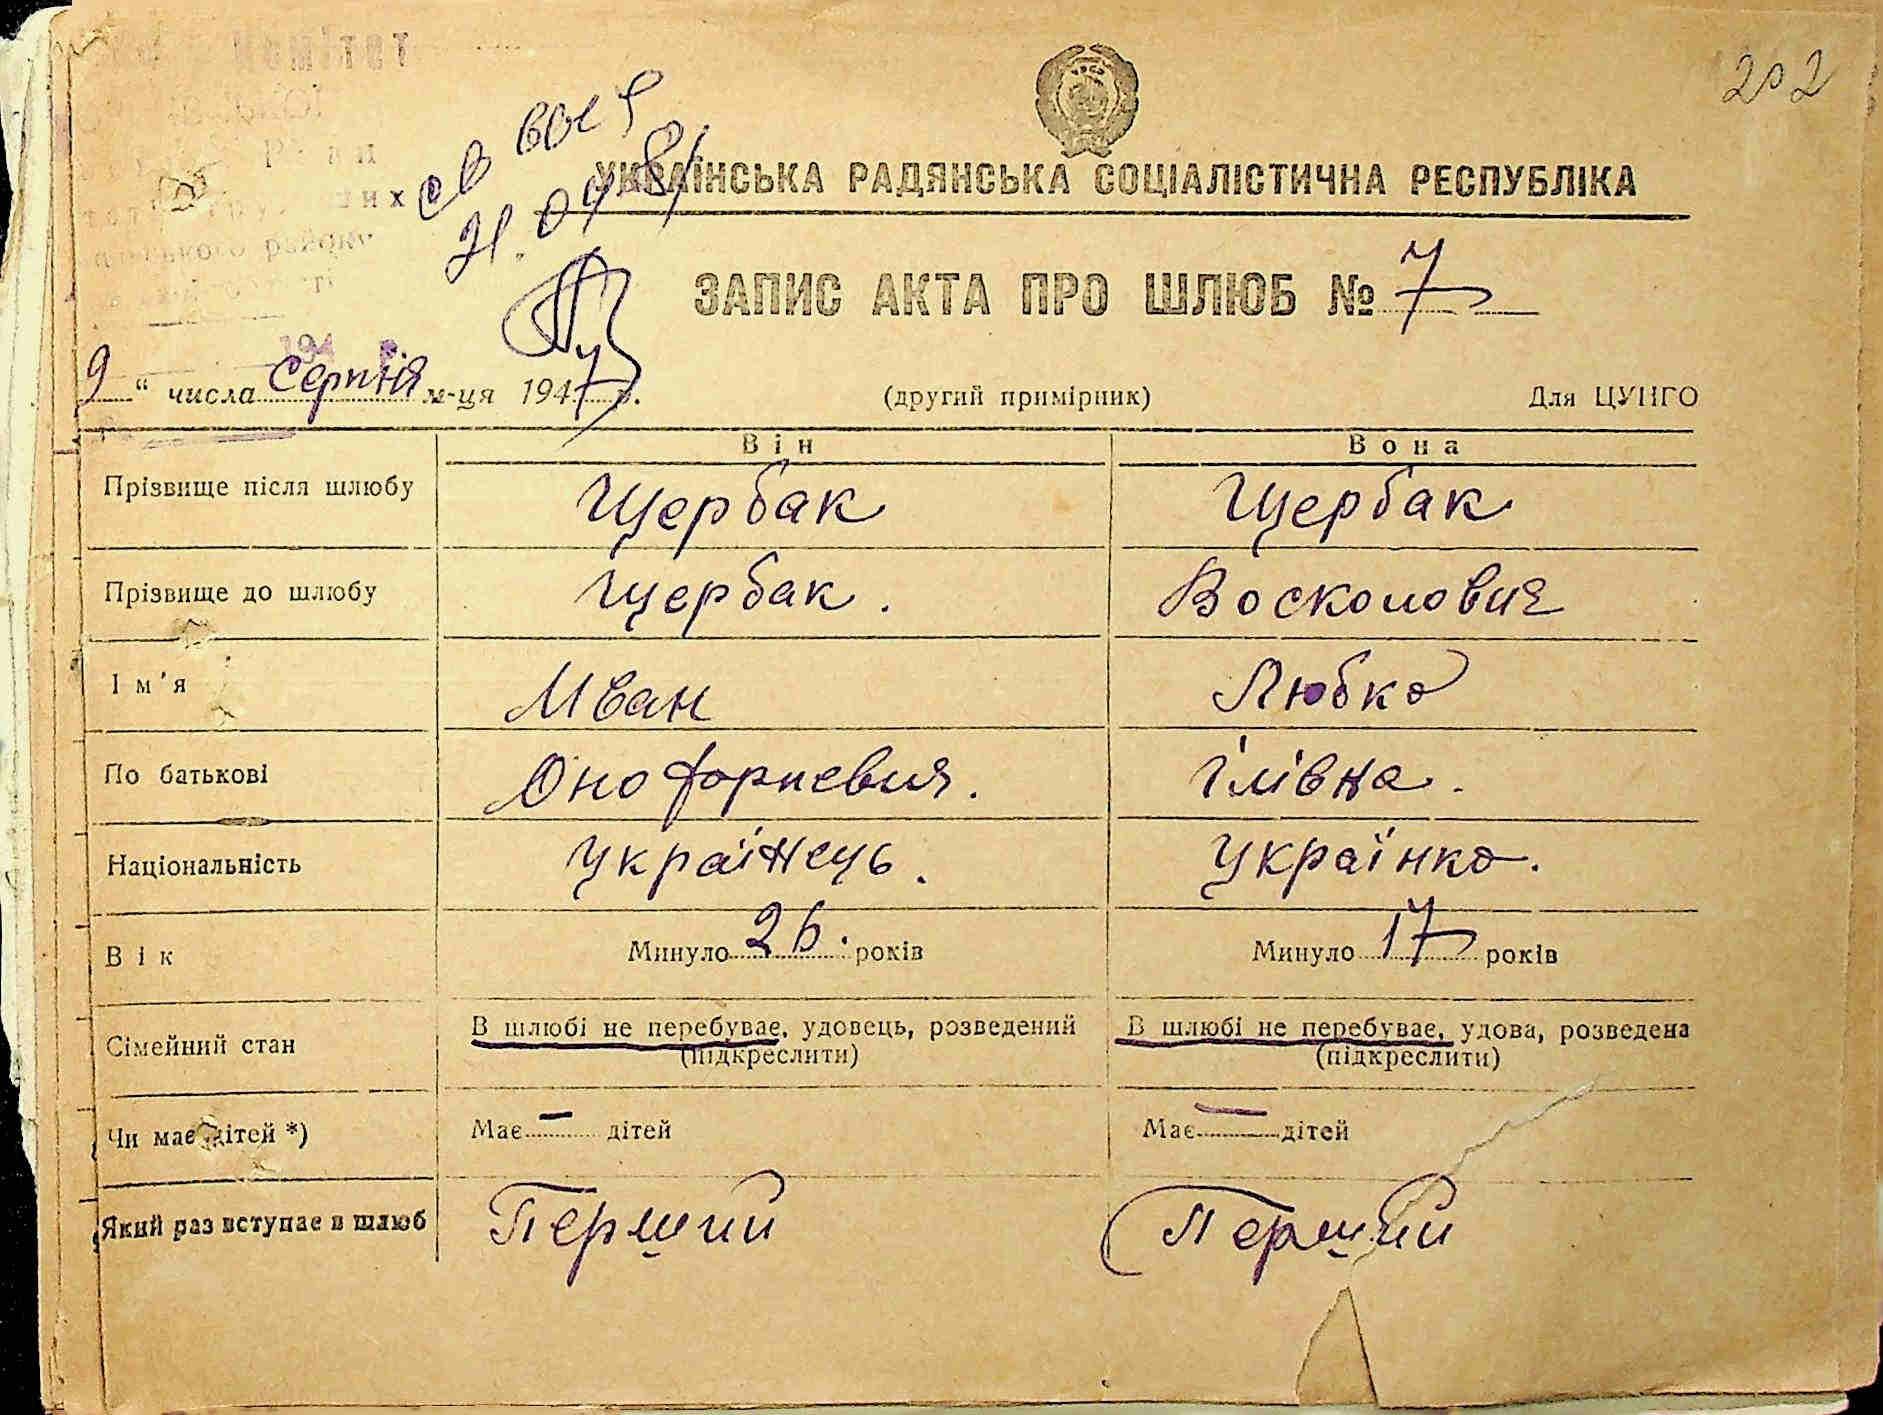 202
св вог
21.04.81
УКРАЇНСЬКА РАДЯНСЬКА СОЦІАЛІСТИЧНА РЕСПУБЛІКА
ЗАПИС АКТА ПРО ШЛЮБ № 7
9 " числа Серпня м-ця 1947 р. (другий примірник) Для ЦУНГО
Він Вона
Прізвище після шлюбу Щербак Щербак
Прізвище до шлюбу Щербак. Воскопович
Ім'я Иван Любка
По батькові Онофорпевич. Ілівна.
Національність Українець. Українка.
Вік Минуло 26. років Минуло 17 років
Сімейний стан В шлюбі не перебуває, удовець, розведений В шлюбі не перебуває, удова, розведена
(підкреслити) (підкреслити)
Чи має дітей *) Має — дітей Має — дітей
Який раз вступає в шлюб Перший Перший